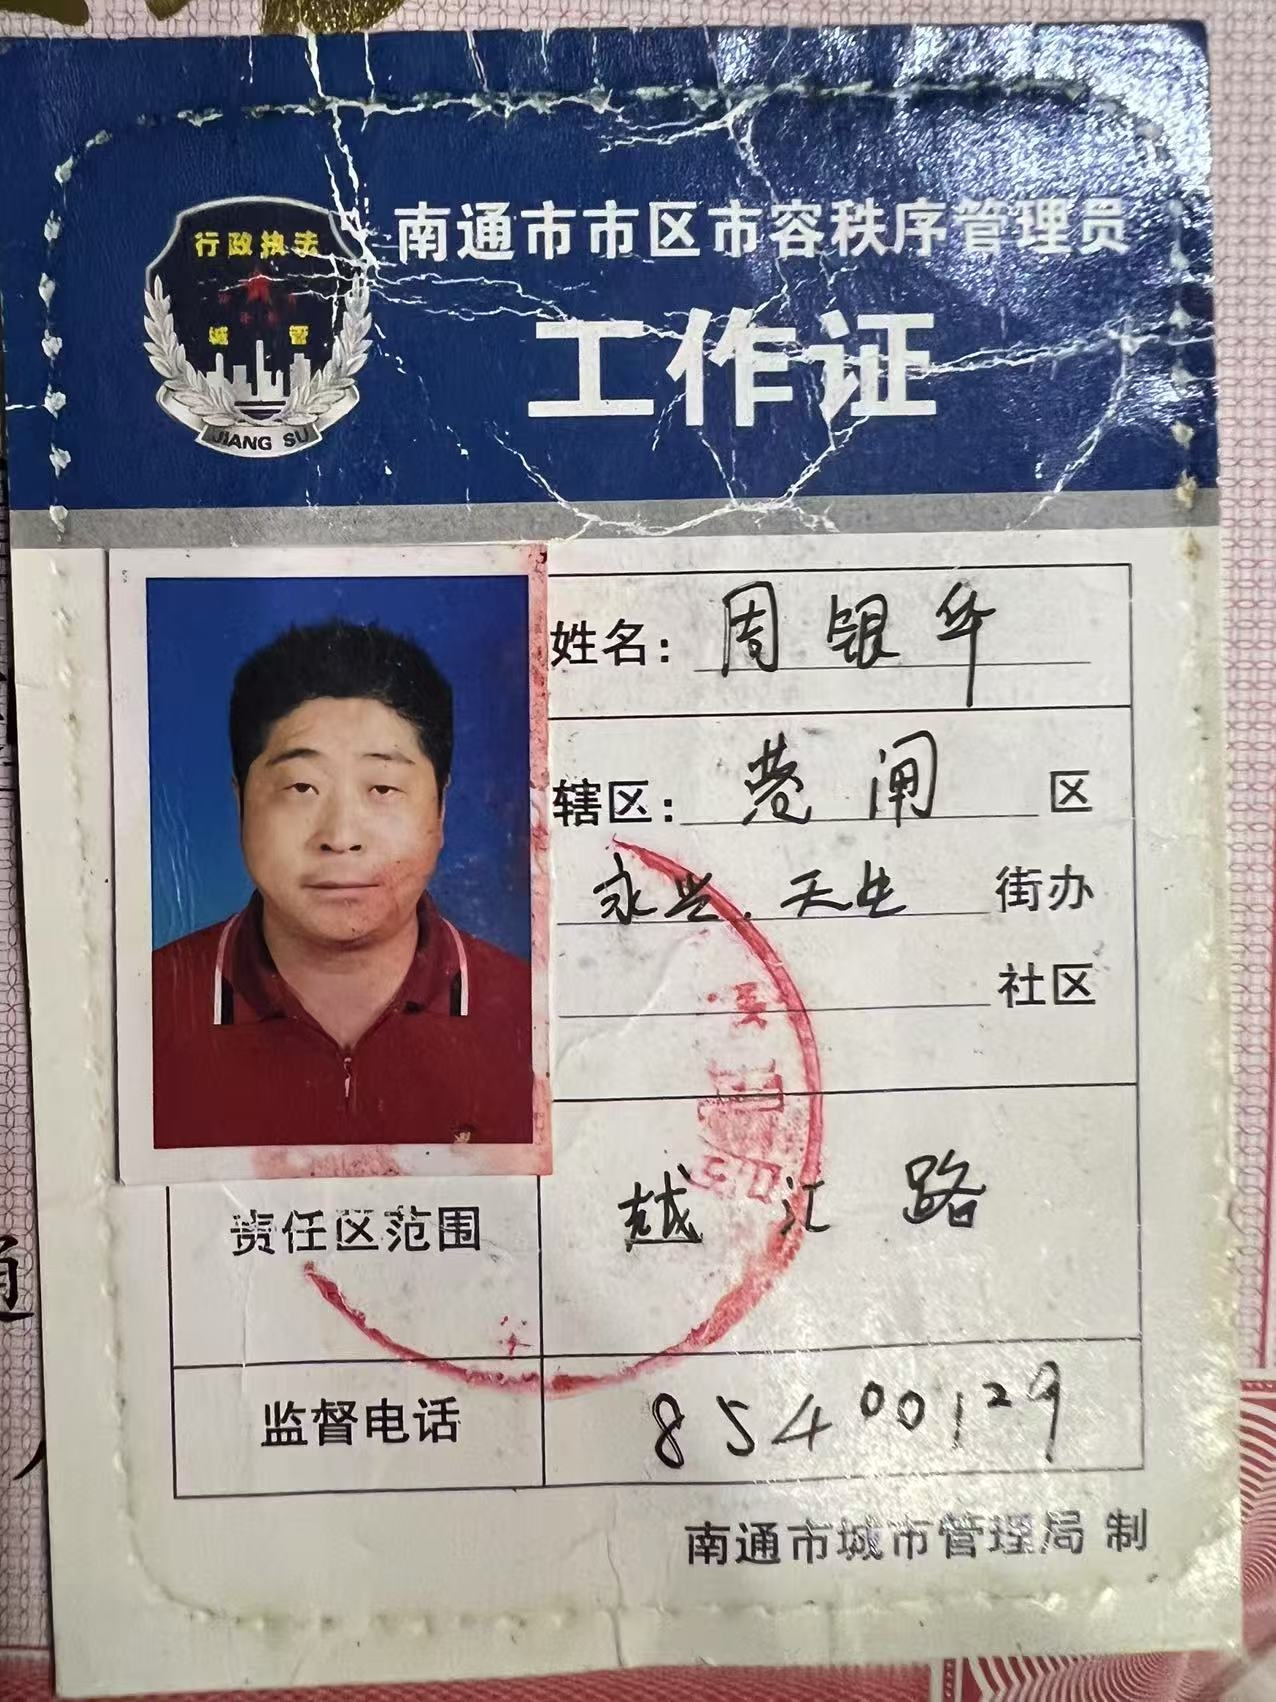 行政执法
城管
JIANG SU
南通市市区市容秩序管理员
工作证
姓名：周银华
辖区：港闸区
永兴、天生街办
社区
责任区范围 越江路
监督电话 85400129
南通市城市管理局 制